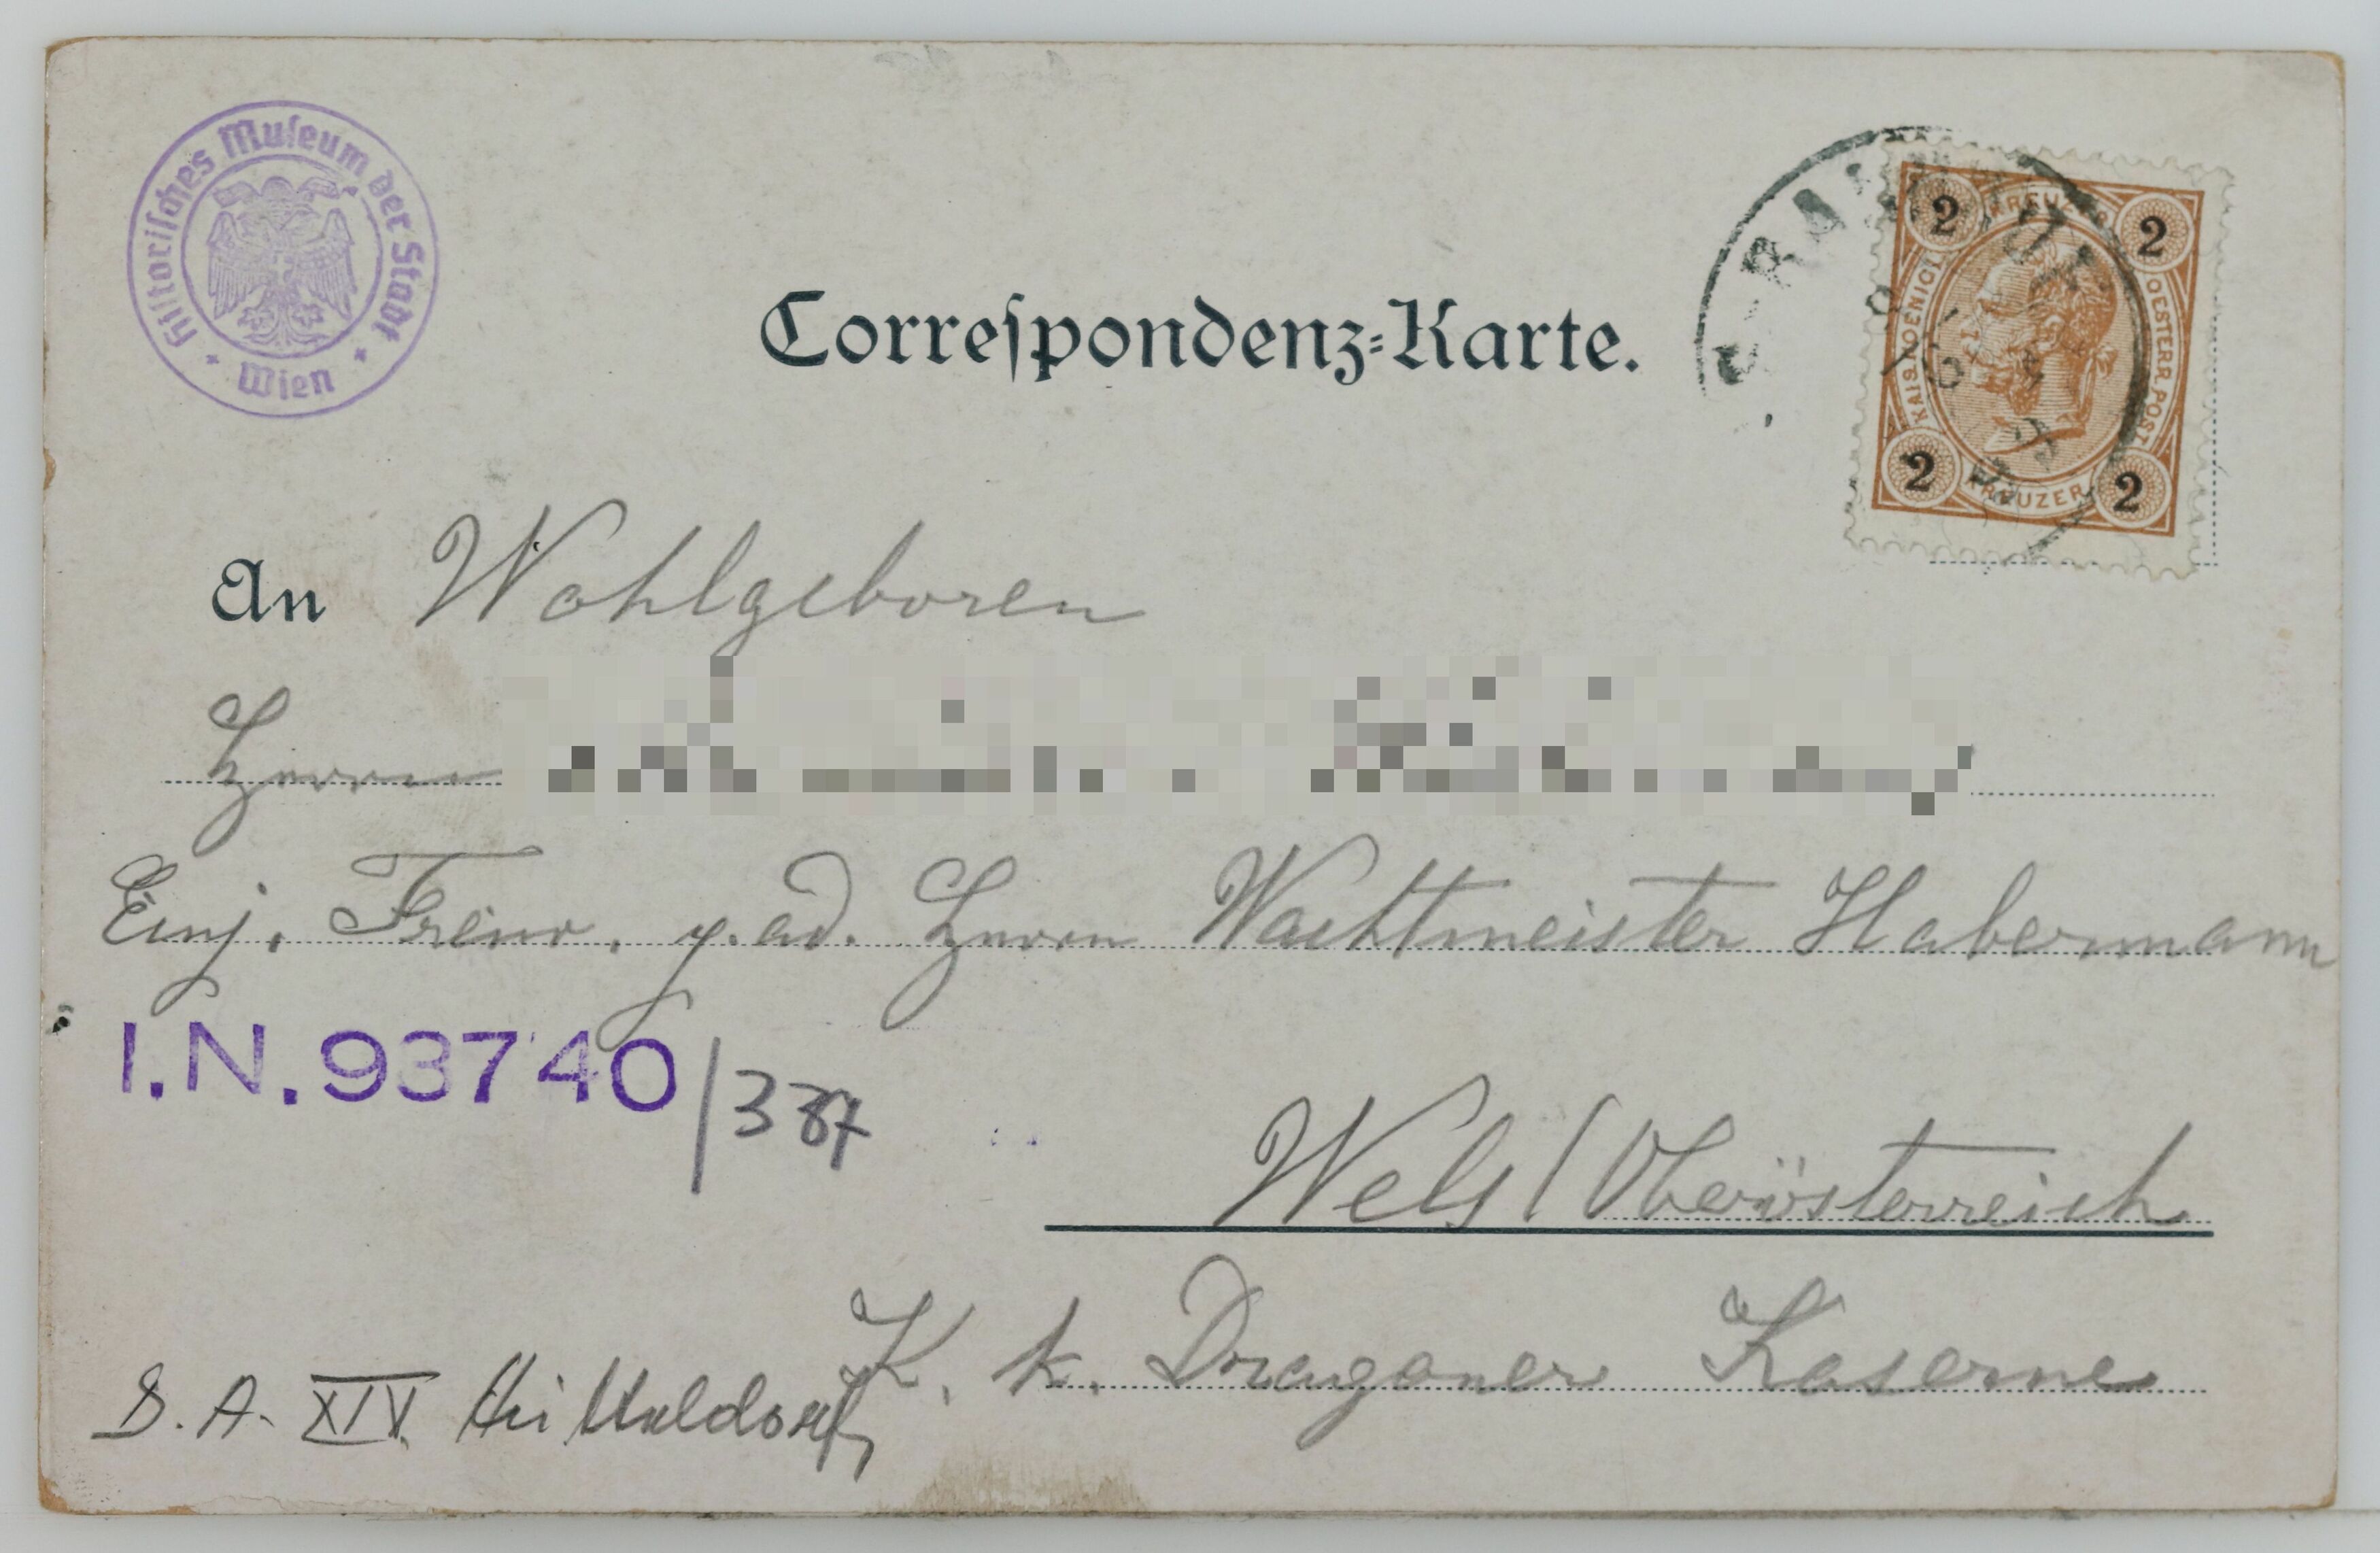 Historisches Museum der Stadt
Wien
Correspondenz-Karte.
2 KREUZER 2
KAIS. KOENIGL. OESTERR. POST.
2 KREUZER 2
An Wohlgeboren
Herrn
Einj. Freiw. p. ad. Herrn Wachtmeister Habermann
I.N. 93740/337
Wels / Oberösterreich
K. k. Dragoner Kaserne
B. A. XIV Hütteldorf